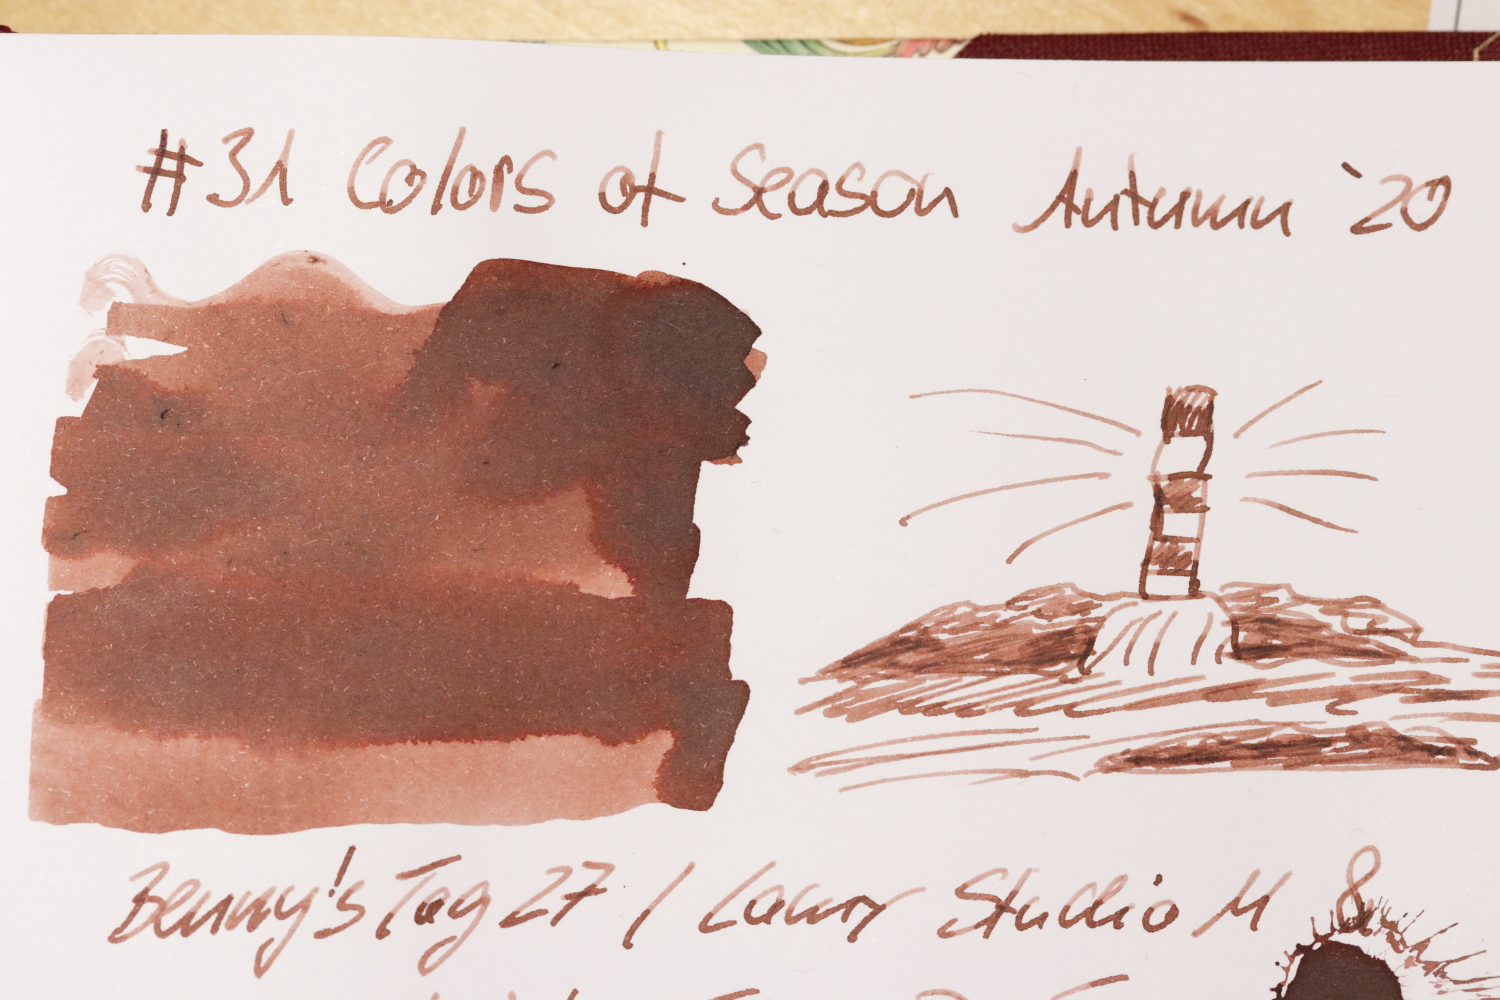 #31 Colors of Season Autumn `20
Benny's Tag 27 / Lamy Studio M &